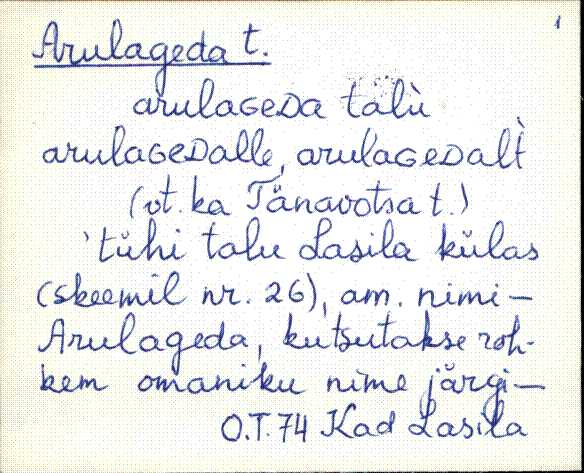 1
Arulageda t.
arulaGeDa talù
arulaGeDalle, arulaGeDalt̀
(vt. ka Tänavotsa t.)
'tühi talu Lasila külas
(skeemil nr. 26), am. nimi –
Arulageda, kutsutakse roh-
kem omaniku nime järgi –
O.T. 74 Kad Lasila